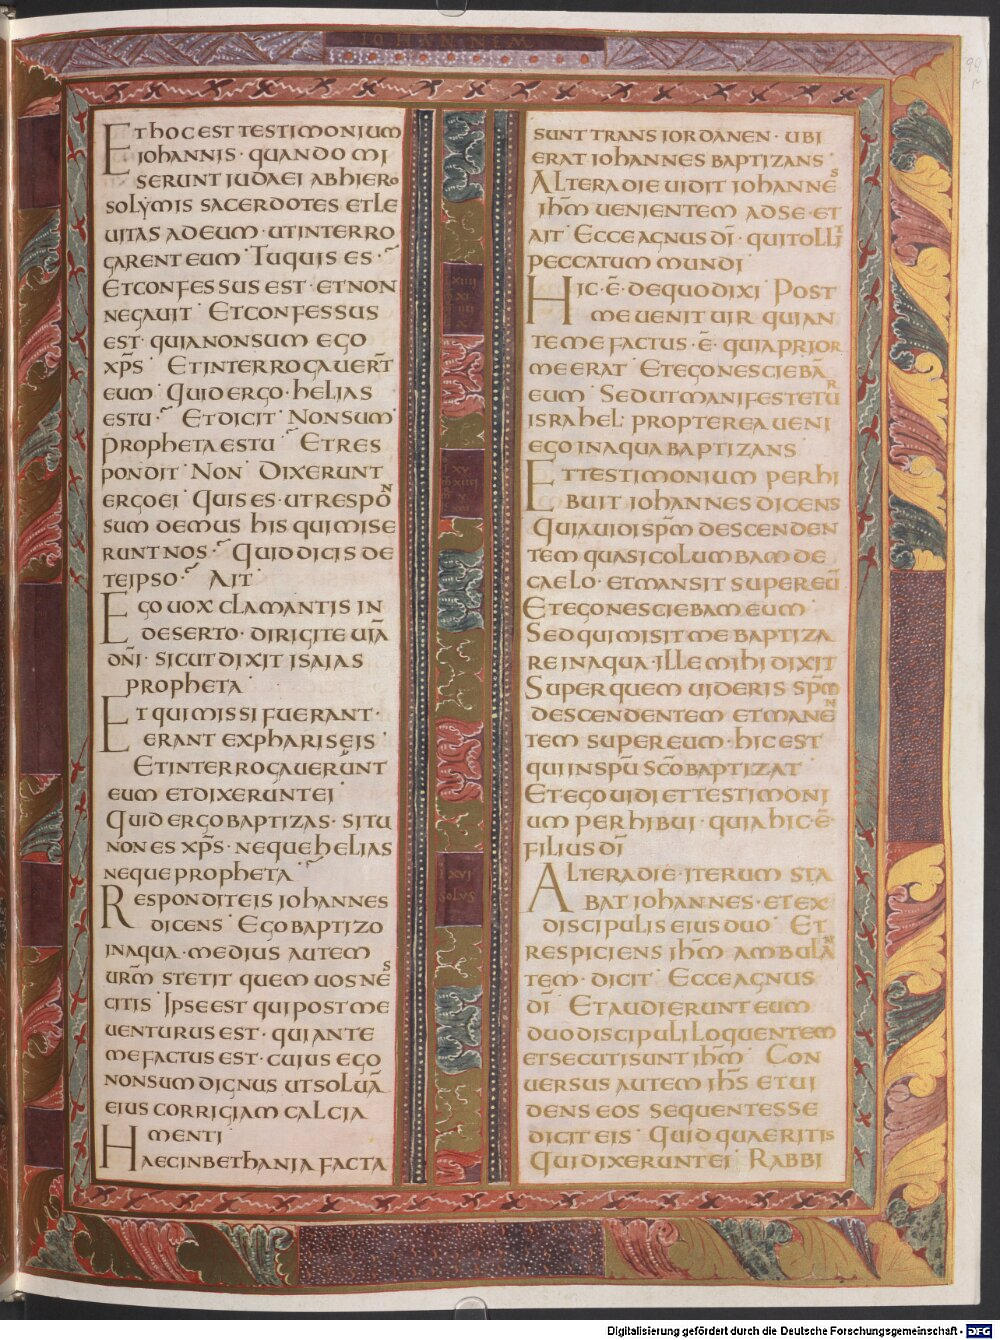 IOHANNEM
99
ET HOC EST TESTIMONIUM
IOHANNIS · QUANDO MI
SERUNT IUDAEI AB HIERO
SOLYMIS SACERDOTES ET LE
UITAS AD EUM · UT INTERRO
GARENT EUM · TU QUIS ES ·
ET CONFESSUS EST · ET NON
NEGAUIT · ET CONFESSUS
EST · QUIA NON SUM EGO
XP̄S · ET INTERROGAUER̄T
EUM · QUID ERGO · HELIAS
ES TU · ET DICIT · NON SUM ·
PROPHETA ES TU · ET RES
PONDIT · NON · DIXERUNT
ERGO EI · QUIS ES · UT RESPON
SUM DEMUS HIS QUI MISE
RUNT NOS · QUID DICIS DE
TE IPSO · AIT ·
EGO UOX CLAMANTIS IN
DESERTO · DIRIGITE UIĀ
DN̄I · SICUT DIXIT ISAIAS
PROPHETA ·
ET QUI MISSI FUERANT ·
ERANT EX PHARISEIS ·
ET INTERROGAUERUNT
EUM ET DIXERUNT EI ·
QUID ERGO BAPTIZAS · SI TU
NON ES XP̄S · NEQUE HELIAS
NEQUE PROPHETA ·
RESPONDIT EIS IOHANNES
DICENS · EGO BAPTIZO
IN AQUA · MEDIUS AUTEM
UR̄M STETIT QUEM UOS NES
CITIS · IPSE EST QUI POST ME
UENTURUS EST · QUI ANTE
ME FACTUS EST · CUIUS EGO
NON SUM DIGNUS UT SOLUĀ
EIUS CORRIGIAM CALCIA
MENTI ·
HAEC IN BETHANIA FACTA
LXVI
SOLVS
SUNT TRANS IORDANEN · UBI
ERAT IOHANNES BAPTIZANS ·
ALTERA DIE UIDIT IOHANNES
IHM̄ UENIENTEM AD SE · ET
AIT · ECCE AGNUS DĪ · QUI TOLLIT
PECCATUM MUNDI
HIC · Ē · DE QUO DIXI · POST
ME UENIT UIR QUI AN
TE ME FACTUS · Ē · QUIA PRIOR
ME ERAT · ET EGO NESCIEBĀ
EUM · SED UT MANIFESTETUR
ISRAHEL · PROPTEREA UENI
EGO IN AQUA BAPTIZANS ·
ET TESTIMONIUM PERHI
BUIT IOHANNES DICENS
QUIA UIDI SPM̄ DESCENDEN
TEM QUASI COLUMBAM DE
CAELO · ET MANSIT SUPER EŪ
ET EGO NESCIEBAM EUM ·
SED QUI MISIT ME BAPTIZA
RE IN AQUA · ILLE MIHI DIXIT
SUPER QUEM UIDERIS SPM̄
DESCENDENTEM ET MANEN
TEM SUPER EUM · HIC EST
QUI IN SPŪ SCŌ BAPTIZAT ·
ET EGO UIDI ET TESTIMONI
UM PERHIBUI · QUIA HIC · Ē ·
FILIUS DĪ
ALTERA DIE · ITERUM STA
BAT IOHANNES · ET EX
DISCIPULIS EIUS DUO · ET
RESPICIENS IHM̄ AMBULAN
TEM · DICIT · ECCE AGNUS
DĪ · ET AUDIERUNT EUM
DUO DISCIPULI LOQUENTEM
ET SECUTI SUNT IHM̄ · CON
UERSUS AUTEM IHS̄ ET UI
DENS EOS SEQUENTES SE
DICIT EIS · QUID QUAERITIS
QUI DIXERUNT EI · RABBI
Digitalisierung gefördert durch die Deutsche Forschungsgemeinschaft - DFG